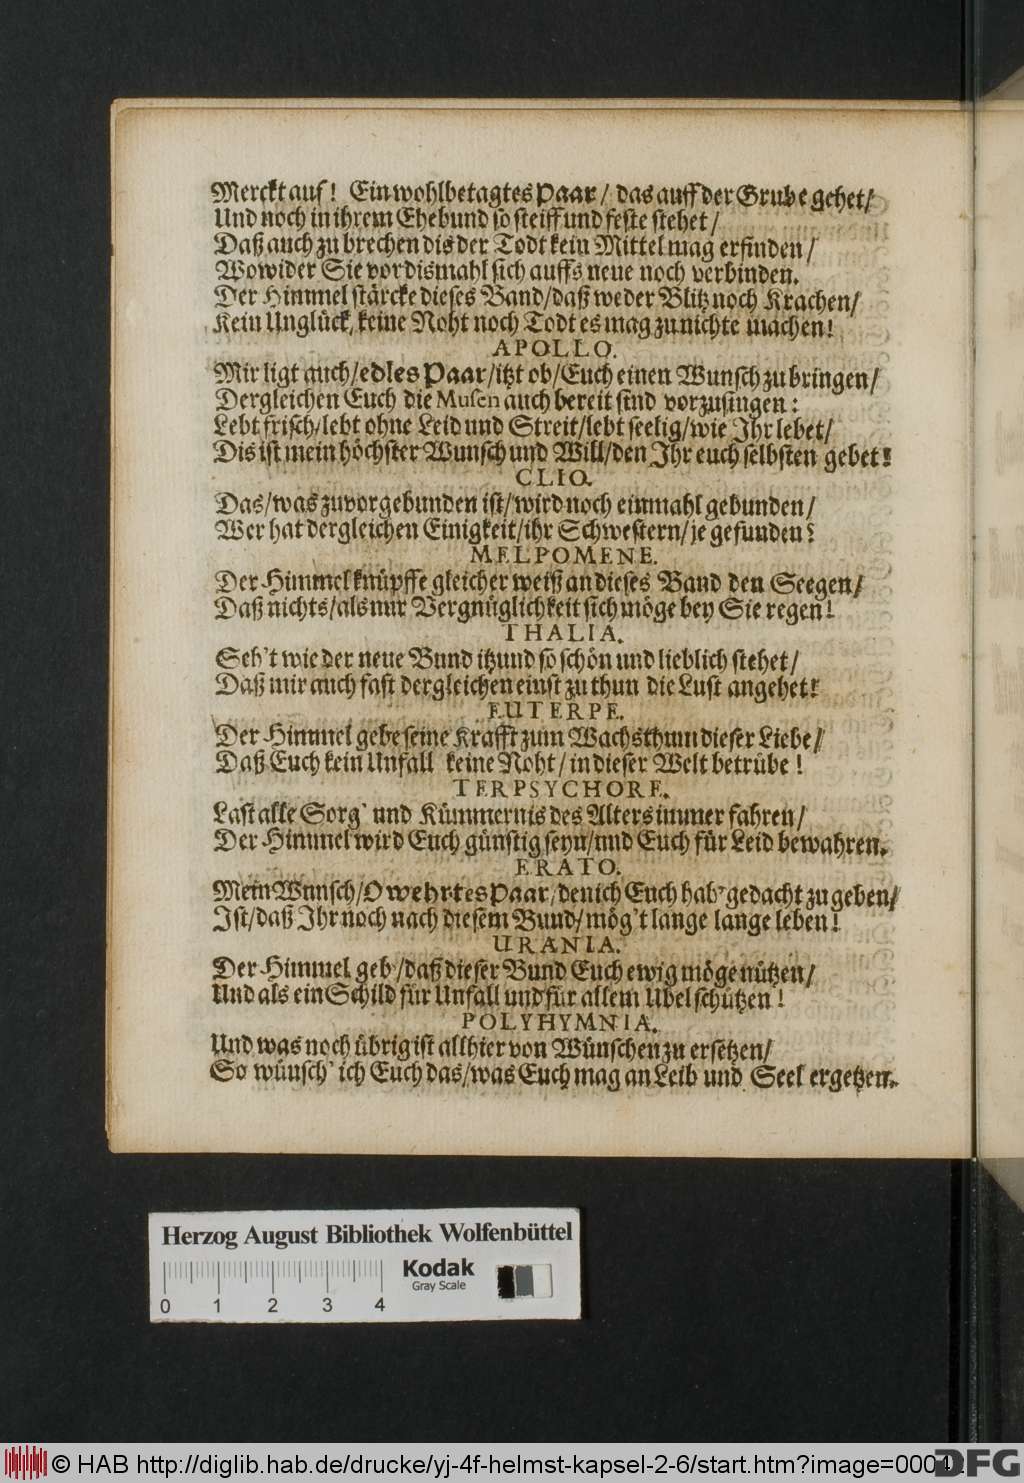 Merckt auf! Ein wohlbetagtes Paar / das auff der Grube gehet/
Und noch in ihrem Ehebund so steiff und feste stehet /
Daß auch zu brechen dis der Todt kein Mittel mag erfinden /
Wowider Sie vor dismahl sich auffs neue noch verbinden.
Der Himmel stärcke dieses Band/ daß weder Blitz noch Krachen/
Kein Unglück, keine Noht noch Todt es mag zu nichte machen!
APOLLO.
Mir ligt auch/ edles Paar/ itzt ob/ Euch einen Wunsch zu bringen/
Dergleichen Euch die Musen auch bereit sind vorzusingen:
Lebt frisch/ lebt ohne Leid und Streit/ lebt seelig/ wie Ihr lebet/
Dis ist mein höchster Wunsch und Will/ den Ihr euch selbsten gebet!
CLIO.
Das/ was zuvor gebunden ist/ wird noch einmahl gebunden/
Wer hat dergleichen Einigkeit/ ihr Schwestern/ je gefunden?
MELPOMENE.
Der Himmel knüpffe gleicher weiß an dieses Band den Seegen/
Daß nichts/ als nur Vergnüglichkeit sich möge bey Sie regen!
THALIA.
Seh't wie der neue Bund itzund so schön und lieblich stehet/
Daß mir auch fast dergleichen einst zu thun die Lust angehet!
EUTERPE.
Der Himmel gebe seine Krafft zum Wachsthum dieser Liebe/
Daß Euch kein Unfall keine Noht/ in dieser Welt betrübe!
TERPSYCHORE.
Last alle Sorg' und Kümmernis des Alters immer fahren/
Der Himmel wird Euch günstig seyn/ und Euch für Leid bewahren.
ERATO.
Mein Wunsch/ O wehrtes Paar/ den ich Euch hab' gedacht zu geben/
Ist/ daß Ihr noch nach diesem Bund/ mög't lange lange leben!
URANIA.
Der Himmel geb'/ daß dieser Bund Euch ewig möge nützen/
Und als ein Schild für Unfall und für allem Ubel schützen!
POLYHYMNIA.
Und was noch übrig ist allhier von Wünschen zu ersetzen/
So wünsch' ich Euch das/ was Euch mag an Leib und Seel ergetzen.
Herzog August Bibliothek Wolfenbüttel
Kodak
Gray Scale
0 1 2 3 4
© HAB http://diglib.hab.de/drucke/yj-4f-helmst-kapsel-2-6/start.htm?image=0004
DFG